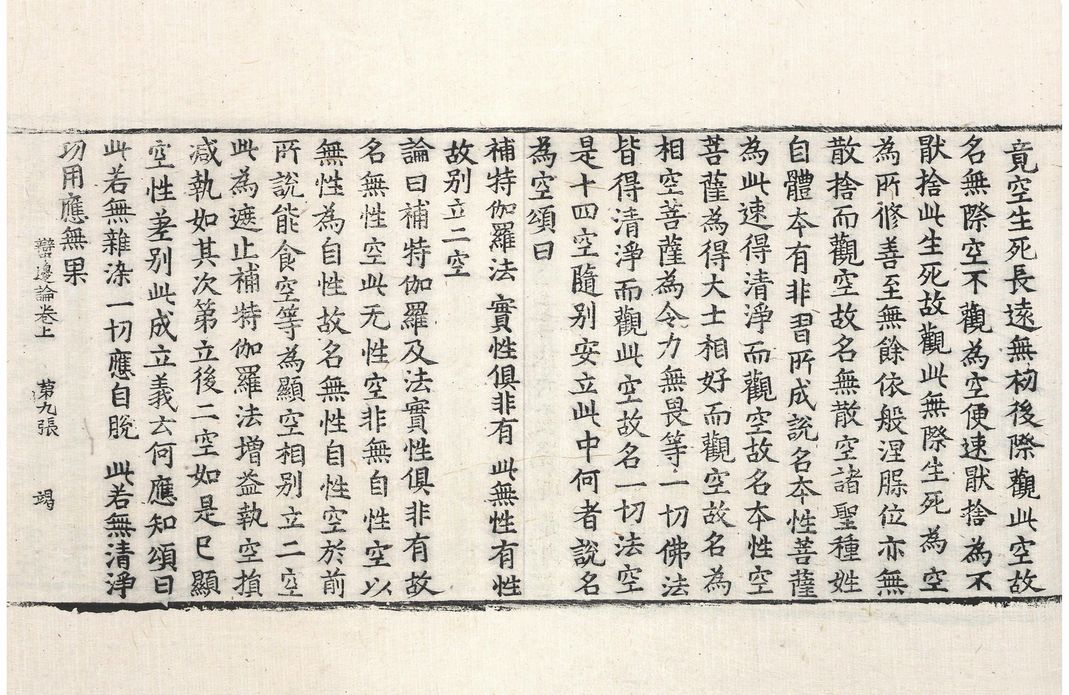 竟空生死長遠無初後際觀此空故
名無際空不觀為空便速猒捨為不
猒捨此生死故觀此無際生死為空
為所修善至無餘依般涅槃位亦無
散捨而觀空故名無散空諸聖種姓
自體本有非習所成說名本性菩薩
為此速得清淨而觀空故名本性空
菩薩為得大士相好而觀空故名為
相空菩薩為令力無畏等一切佛法
皆得清淨而觀此空故名一切法空
是十四空隨別安立此中何者說名
為空頌曰
補特伽羅法 實性俱非有 此無性有性
故別立二空
論曰補特伽羅及法實性俱非有故
名無性空此无性空非無自性空以
無性為自性故名無性自性空於前
所說能食空等為顯空相別立二空
此為遮止補特伽羅法增益執空損
减執如其次第立後二空如是已顯
空性差別此成立義云何應知頌曰
此若無雜染一切應自脫 此若無清淨
功用應無果
辯邊論卷上 第九張 竭